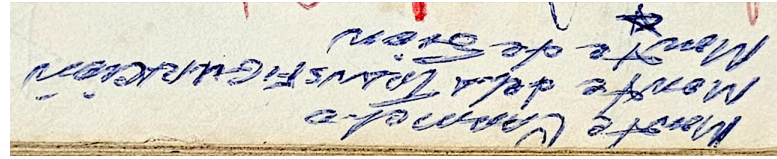 Monte Carmelo
Monte dela TRANSFIGURACión
Monte de Sion